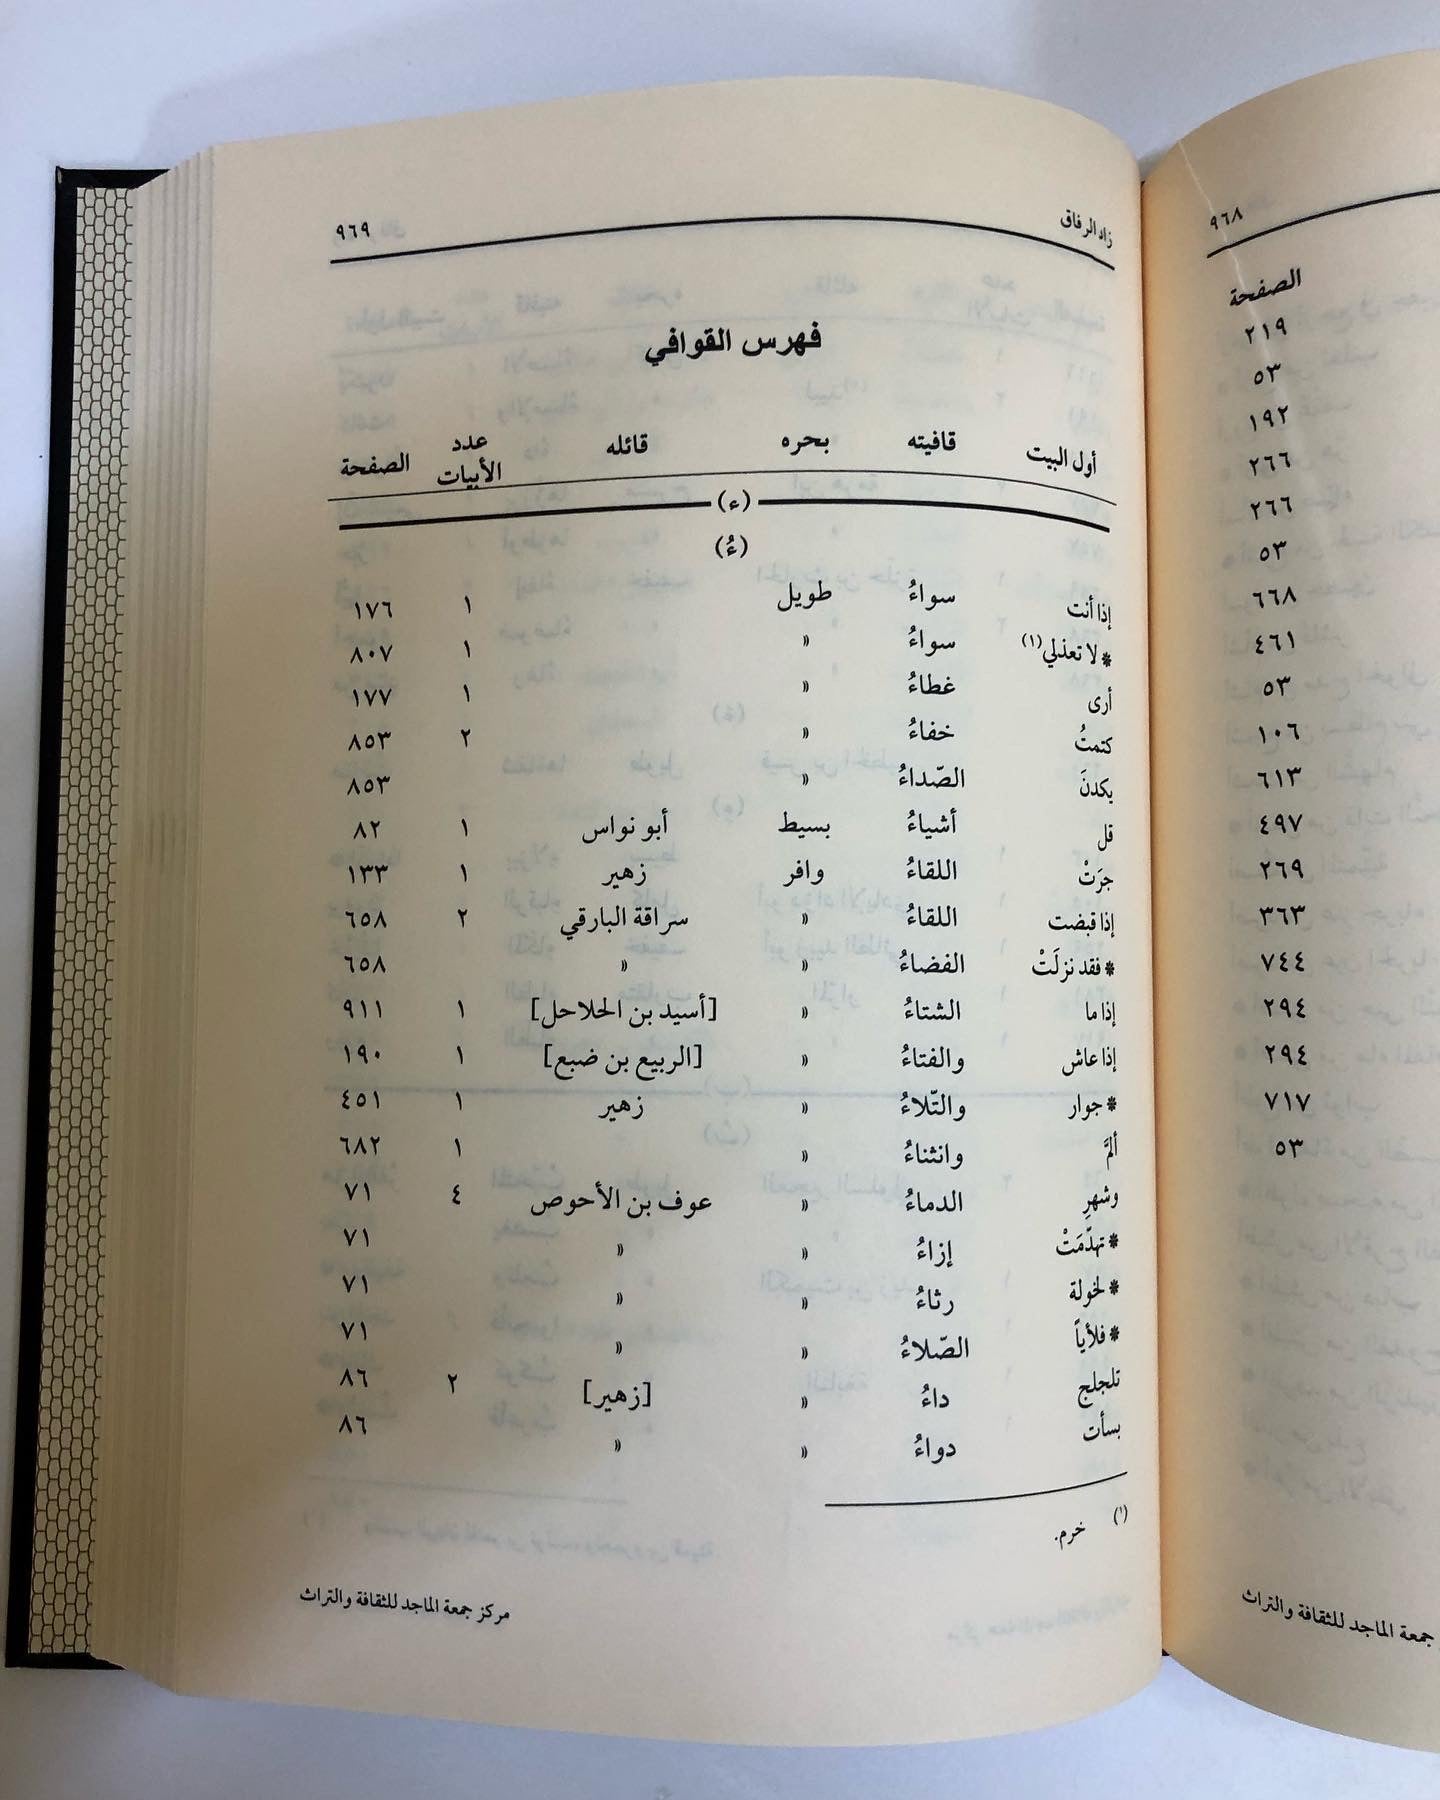 ٩٦٨
الصفحة
٢١٩
٥٣
١٩٢
٢٦٦
٢٦٦
٥٣
٦٦٨
٤٦١
٥٣
١٠٦
٦١٣
٤٩٧
٢٦٩
٣٦٣
٧٤٤
٢٩٤
٢٩٤
٧١٧
٥٣
جمعة الماجد للثقافة والتراث
زاد الرفاق ٩٦٩
فهرس القوافي
أول البيت قافيته بحره قائله عدد الأبيات الصفحة
(ء)
(ءُ)
إذا أنت سواءُ طويل ١ ١٧٦
* لا تعذلي(١) سواءُ » ١ ٨٠٧
أرى غطاءُ » ١ ١٧٧
كتمتُ خفاءُ » ٢ ٨٥٣
يكدنَ الصّداءُ » ٨٥٣
قل أشياءُ بسيط أبو نواس ١ ٨٢
جرَتْ اللقاءُ وافر زهير ١ ١٣٣
إذا قبضت اللقاءُ » سراقة البارقي ٢ ٦٥٨
* فقد نزلَتْ الفضاءُ » » ٦٥٨
إذا ما الشتاءُ » [أسيد بن الحلاحل] ١ ٩١١
إذا عاش والفتاءُ » [الربيع بن ضبع] ١ ١٩٠
* جوار والتّلاءُ » زهير ١ ٤٥١
ألمَّ وانثناءُ » ١ ٦٨٢
وشهرِ الدماءُ » عوف بن الأحوص ٤ ٧١
* تهدّمَتْ إزاءُ » » ٧١
* لخولة رثاءُ » » ٧١
* فلأياً الصّلاءُ » » ٧١
تلجلج داءُ » [زهير] ٢ ٨٦
بسأت دواءُ » » ٨٦
(١) خرم.
مركز جمعة الماجد للثقافة والتراث